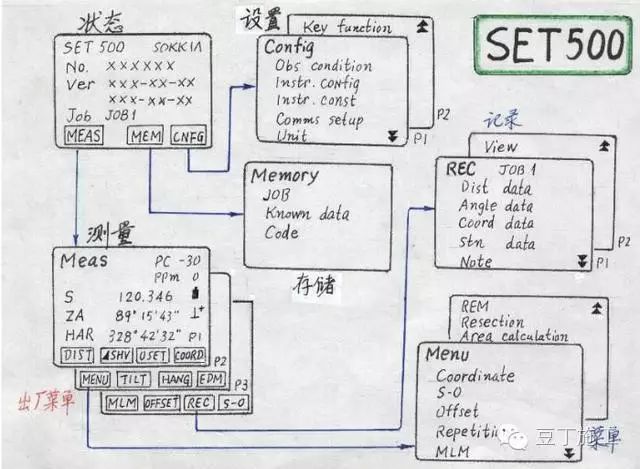 状态
SET 500 SOKKIA
No. ××××××
Ver ×××-××-××
×××-××-××
Job JOB1
MEAS MEM CNFG
设置
Key function
Config
Obs condition
Instr. config
Instr. const
Comms setup
Unit
P2
P1
SET500
Memory
JOB
Known data
Code
存储
记录
View
REC JOB 1
Dist data
Angle data
Coord data
Stn data
Note
P2
P1
测量
Meas PC -30
PPm 0
S 120.346
ZA 89°15'43"
HAR 328°42'32" P1
DIST ◢SHV OSET COORD
P2
MENU TILT HANG EDM
P3
MLM OFFSET REC S-O
出厂菜单
REM
Resection
Area calculation
Menu
Coordinate
S-O
Offset
MLM
菜单
豆丁施